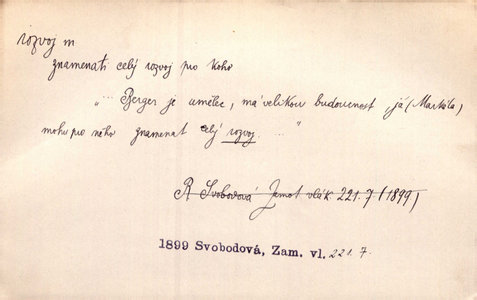 rozvoj m
znamenati celý rozvoj pro koho
„ ... Berger je umělec, má velikou budoucnost, já (Markéta)
mohu pro něho znamenat celý rozvoj. ... "
R Svobodová Zamot vlák 221.7 (1899)
1899 Svobodová, Zam. vl. 221.7.